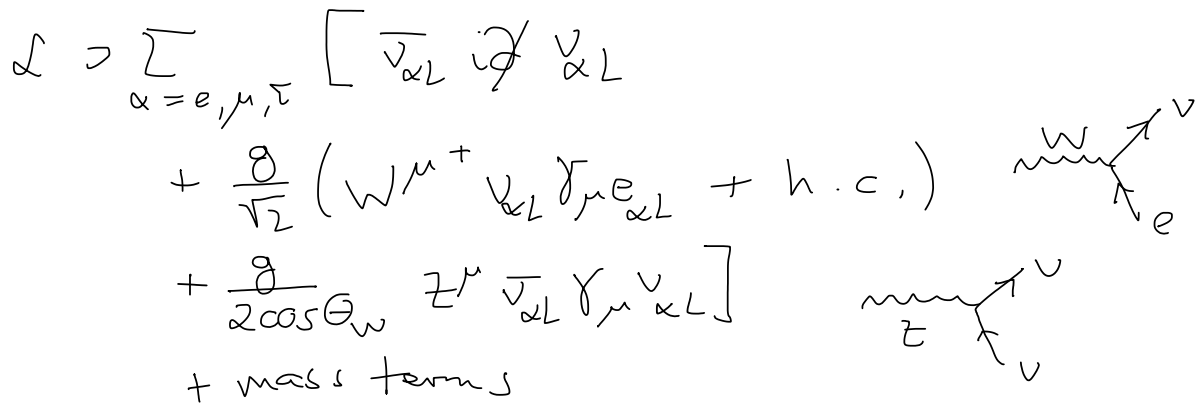 ℒ ⊃ Σ_{α=e,μ,τ} [ ν̄_{αL} i∂̸ ν_{αL}
+ g/√2 ( W^{μ+} ν_{αL} γ_μ e_{αL} + h.c. )
W ν e
+ g/(2cosθ_W) Z^μ ν̄_{αL} γ_μ ν_{αL} ]
Z ν ν
+ mass terms